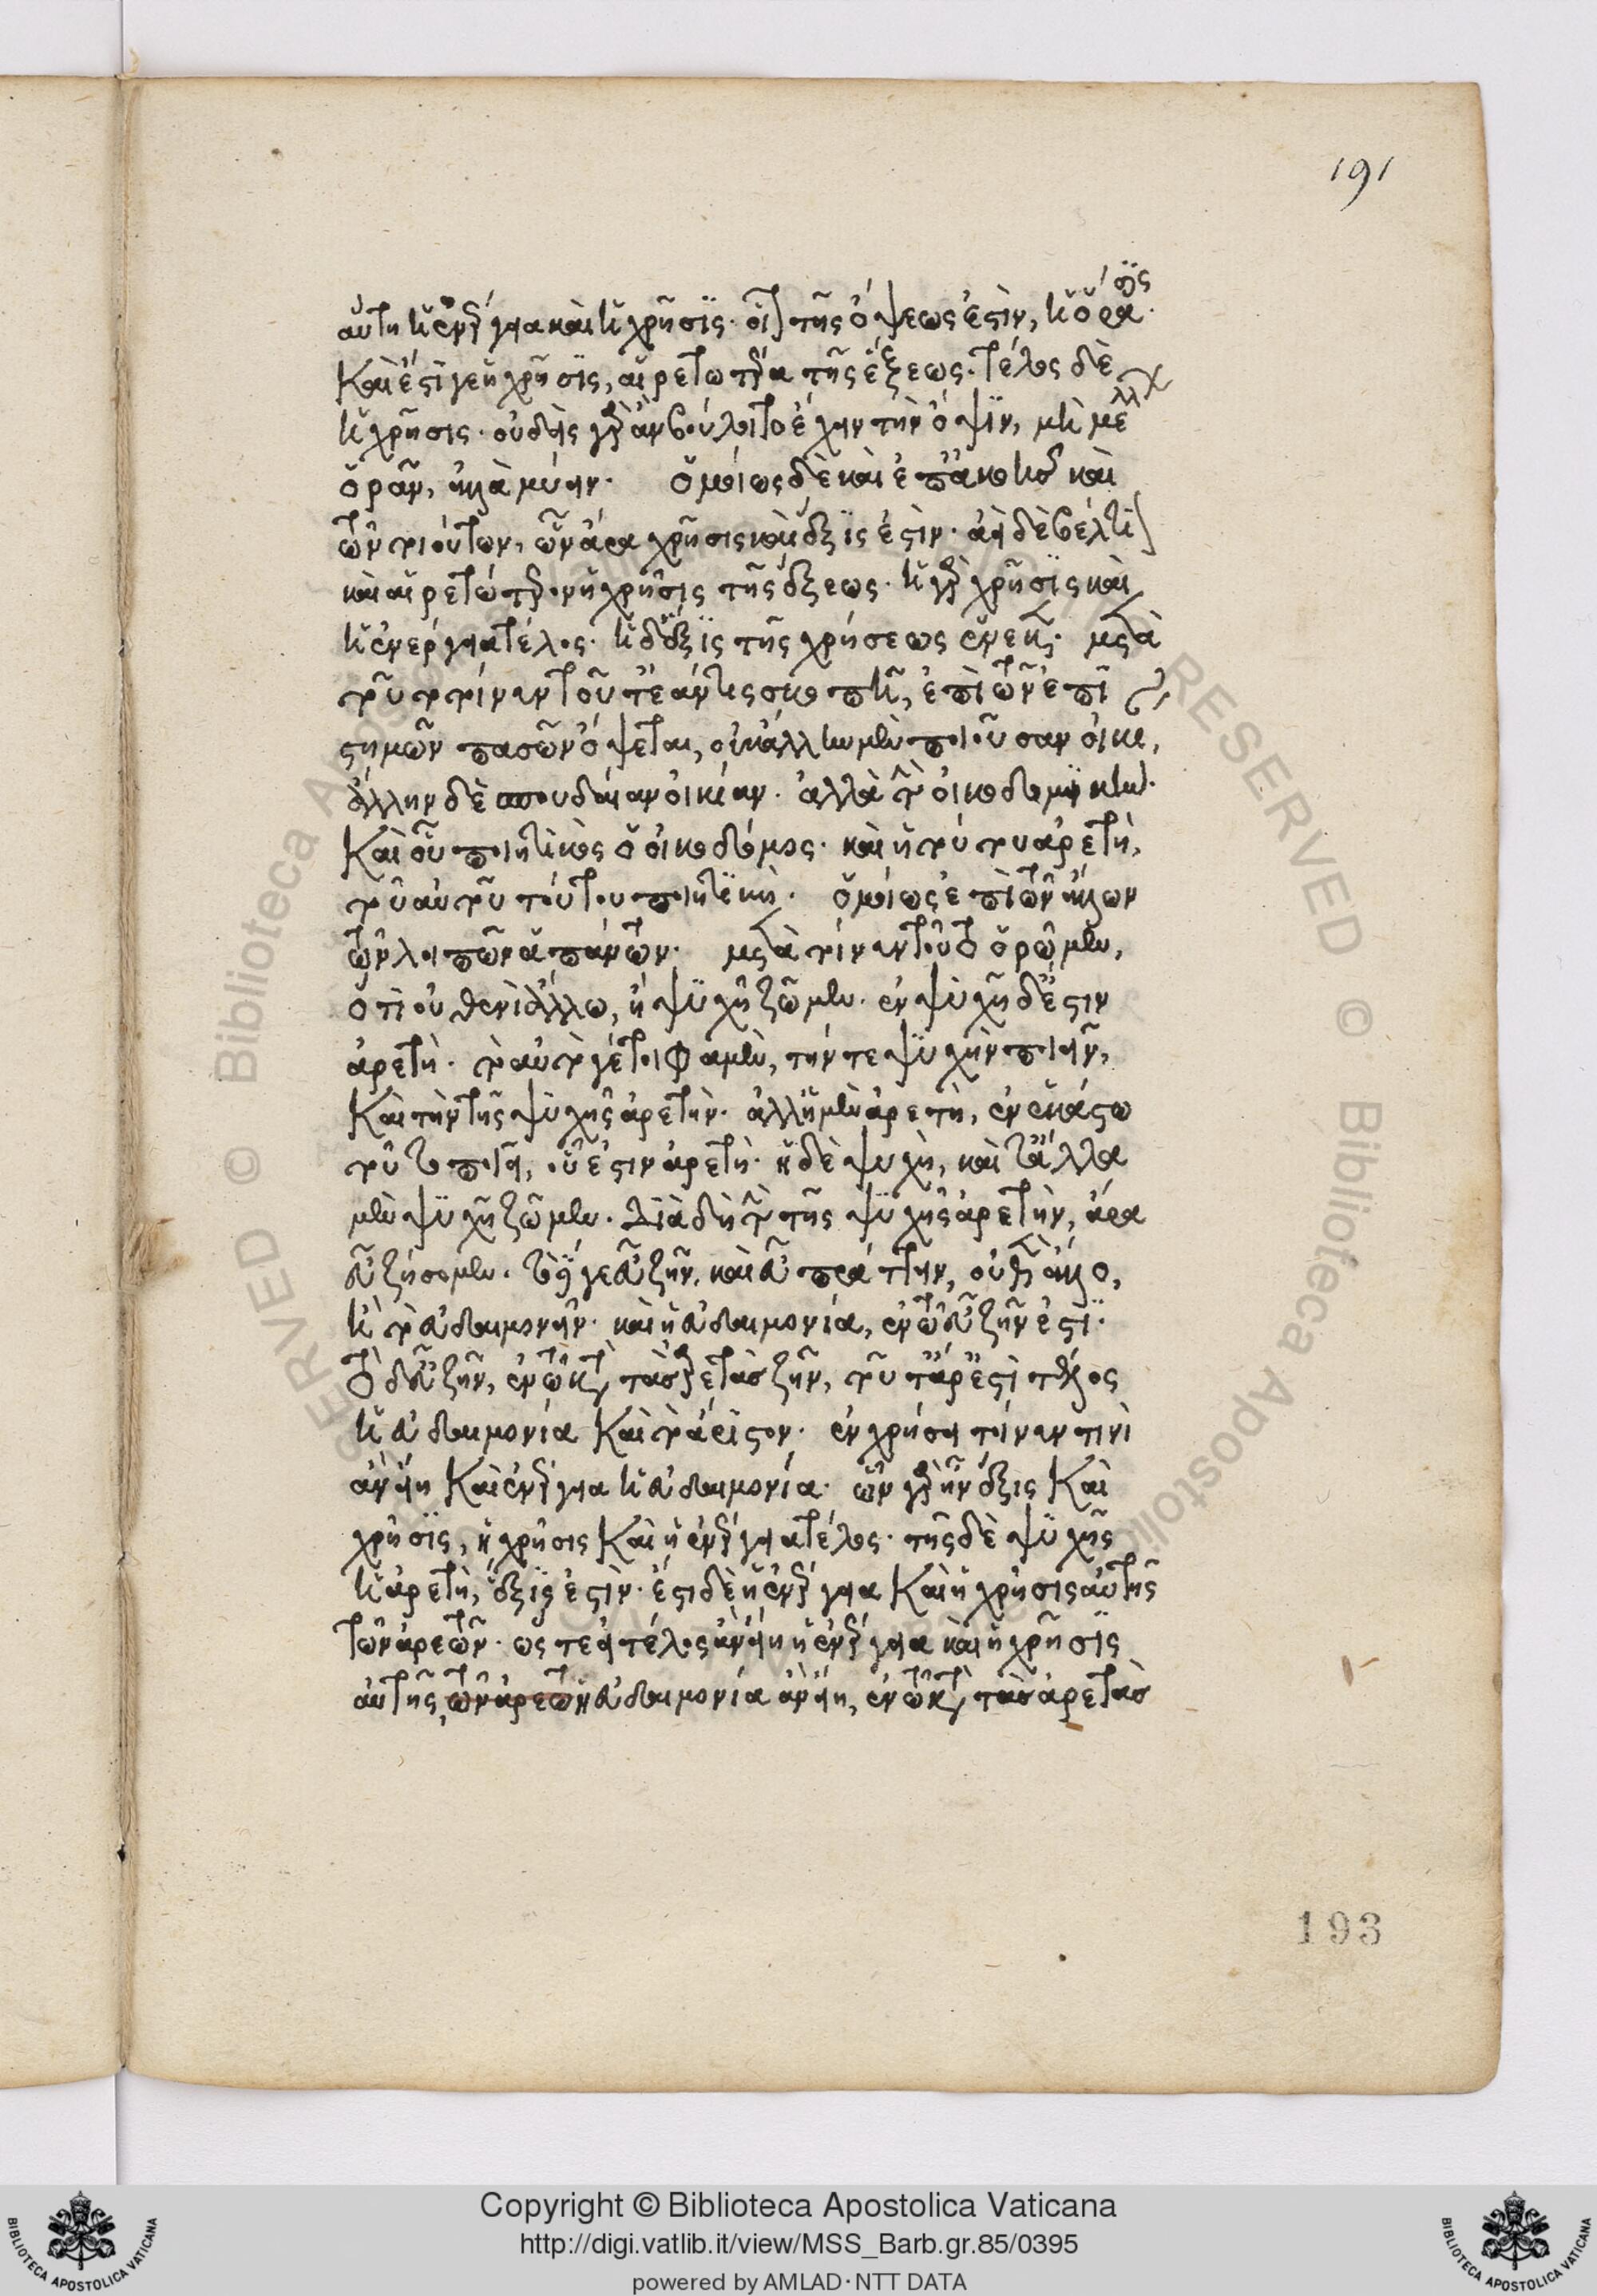 191
αὕτη ἡ ἐνέργεια καὶ ἡ χρῆσις. οἷον τῆς ὄψεως ἐστὶν, ἡ ὅρασις.
Καὶ ἔστί γε ἡ χρῆσις, αἱρετωτέρα τῆς ἕξεως. τέλος δὲ
ἡ χρῆσις. οὐδεὶς γὰρ ἂν βούλοιτο ἔχειν τὴν ὄψιν, μὴ μέλλων
ὁρᾶν, ἀλλὰ μύειν. ὁμοίως δὲ καὶ ἐπ' ἀκοῆς καὶ
τῶν τοιούτων, ὧν ἄρα χρῆσις καὶ ἕξις ἐστὶν. ἀεὶ δὲ βέλτιον
καὶ αἱρετώτερον ἡ χρῆσις τῆς ἕξεως. ἡ γὰρ χρῆσις καὶ
ἡ ἐνέργεια τέλος. ἡ δ' ἕξις τῆς χρήσεως ἕνεκεν. μετὰ
τοῦτο τοίνυν τοῦτ' ἐάν τις σκοπῇ, ἐπὶ τῶν ἐπι
στημῶν πασῶν ὄψεται, οὐκ ἄλλην μὲν ποιοῦσαν οἰκίαν,
ἄλλην δὲ σπουδαίαν οἰκίαν. ἀλλὰ τὴν οἰκοδομικήν.
Καὶ οὗ ποιητικὸς ὁ οἰκοδόμος. καὶ ἡ τούτου ἀρετὴ,
τοῦ αὐτοῦ τούτου ποιητικὴ. ὁμοίως ἐπὶ τῶν ἄλλων
τῶν λοιπῶν ἁπάντων. μετὰ τοίνυν τοῦτο ὁρῶμεν,
ὅτι οὐθενὶ ἄλλῳ, ἢ ψυχῇ ζῶμεν. ἐν ψυχῇ δ' ἔστιν
ἀρετὴ. τὸ αὐτό γέ τοι φαμὲν, τήν τε ψυχὴν ποιεῖν,
Καὶ τὴν τῆς ψυχῆς ἀρετὴν. ἀλλ' ἡ μὲν ἀρετὴ, ἐν ἑκάστῳ
τοῦτο ποιεῖ, οὗ ἐστιν ἀρετὴ. ἡ δὲ ψυχὴ, καὶ τἆλλα
μὲν ψυχῇ ζῶμεν. Διὰ δὴ τὴν τῆς ψυχῆς ἀρετὴν, ἄρα
εὖ ζήσομεν. τὸ δέ γε εὖ ζῆν, καὶ εὖ πράττειν, οὐδὲν ἄλλο,
ἢ τὸ εὐδαιμονεῖν. καὶ ἡ εὐδαιμονία, ἐν τῷ εὖ ζῆν ἐστί.
Τὸ δ' εὖ ζῆν, ἐν τῷ κατὰ τὰς ἀρετὰς ζῆν, τοῦτ' ἄρ' ἐστὶ τέλος
ἡ εὐδαιμονία Καὶ τὸ ἄριστον. ἐν χρήσει τοίνυν τινὶ
ἂν εἴη Καὶ ἐνέργεια ἡ εὐδαιμονία. ὧν γὰρ ἦν ἕξις Καὶ
χρῆσις, ἡ χρῆσις Καὶ ἡ ἐνέργεια τέλος. τῆς δὲ ψυχῆς
ἡ ἀρετὴ, ἕξις ἐστὶν. ἔστι δὲ ἡ ἐνέργεια Καὶ ἡ χρῆσις αὐτῆς
τῶν ἀρετῶν. ὥστε εἰ τέλος ἂν εἴη ἡ ἐνέργεια καὶ ἡ χρῆσις
αὐτῆς, τῶν ἀρετῶν ἡ εὐδαιμονία ἂν εἴη, ἐν τῷ κατὰ τὰς ἀρετὰς
193
© Biblioteca Apostolica
RESERVED © Biblioteca Apostolica
Copyright © Biblioteca Apostolica Vaticana
http://digi.vatlib.it/view/MSS_Barb.gr.85/0395
powered by AMLAD·NTT DATA
BIBLIOTECA APOSTOLICA VATICANA
BIBLIOTECA APOSTOLICA VATICANA